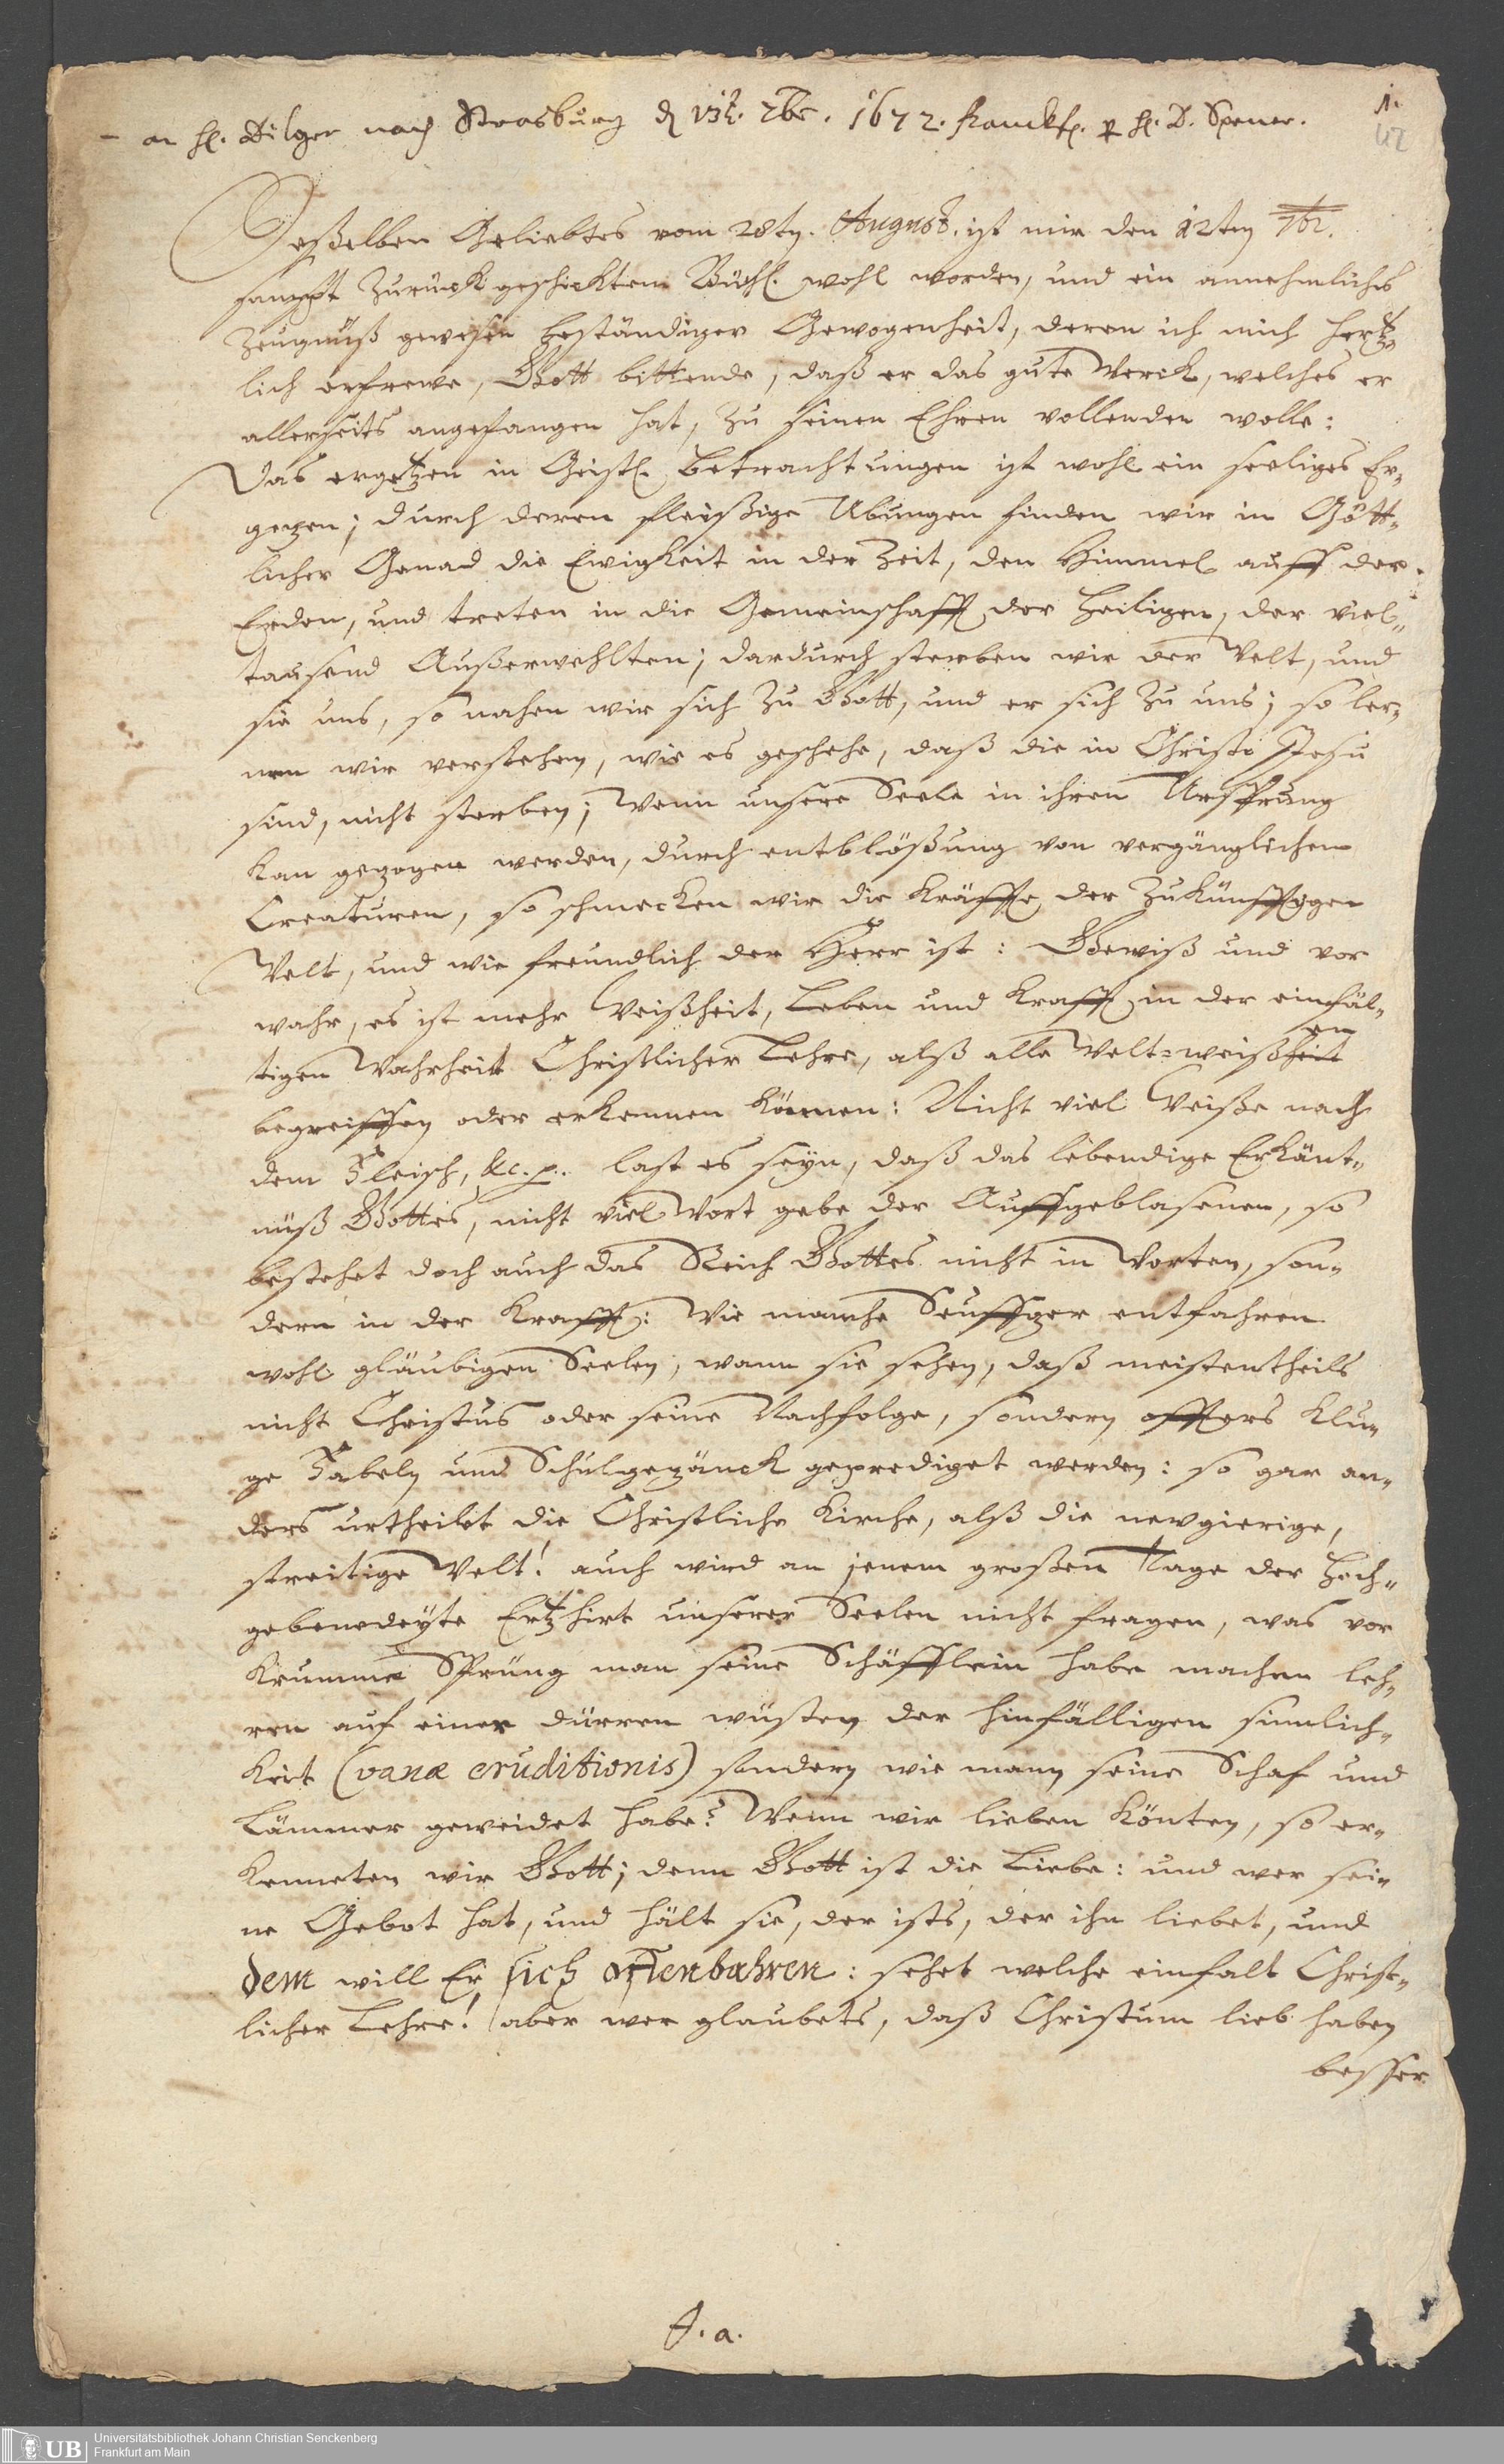 1.
42
- an H. Bilger nach Strasburg d 7br. 1672. Franckf. p H. D. Spener.
Desselben Geliebtes vom 28ten. August. ist mir den 12ten 7br.
sampt zurück geschicktem Büchl. wohl worden, und ein annehmliches
Zeugnüß gewesen beständiger Gewogenheit, deren ich mich hertz„
lich erfrewe, Gott bittende, daß er das gute Werck, welches er
allerseits angefangen hat, zu seinen Ehren vollenden wolle:
Das ergetzen in Geistl. betrachtungen ist wohl ein seeliges Er„
getzen; durch deren fleißige Übungen finden wir in Gött„
licher Genad die Ewigkeit in der Zeit, den Himmel auff der
Erden, und treten in die Gemeinschafft der Heiligen, der viel„
tausend Außerwehlten; dardurch sterben wir der Welt, und
sie uns, so nahen wir sich zu Gott, und er sich zu uns; so ler„
nen wir verstehen, wie es geschehe, daß die in Christo Jesu
sind, nicht sterben; Wenn unsere Seele in ihren Ursprung
kan gezogen werden, durch entblößung von vergänglichen
Creaturen, so schmecken wir die Kräffte der Zukünfftigen
Welt, und wie freundlich der Herr ist: Gewiß und vor
wahr, es ist mehr Weißheit, Leben und Krafft in der einfäl„
tigen Wahrheit Christlicher Lehre, alß alle Welt=weißheit
en
begreiffen oder erkennen können: Nicht viel Weiße nach
dem Fleisch, &c. p. last es seyn, daß das lebendige Erkänt„
nüß Gottes, nicht viel Wort gebe der Auffgeblasenen, so
bestehet doch auch das Reich Gottes nicht in Worten, son„
dern in der Krafft: Wie manche Seuffzer entfahren
wohl gläubigen Seelen, wann sie sehen, daß meistentheils
nicht Christus oder seine Nachfolge, sondern öffters Klu„
ge Fabeln und Schulgezänck geprediget werden: so gar an„
ders urtheilet die Christliche Kirche, alß die newgierige,
streitige Welt! auch wird an jenem großen Tage der Hoch„
gebenedeyte Ertzhirt unserer Seelen nicht fragen, was vor
Krumme Sprüng man seine Schäfflein habe machen leh„
ren auf einer dürren wüsten der hinfälligen sinnlich„
keit (vanæ eruditionis) sondern wie mann seine Schaf und
Lämmer geweidet habe? Wenn wir lieben könten, so er„
kenneten wir Gott; denn Gott ist die Liebe: und wer sei„
ne Gebot hat, und hält sie, der ists, der ihn liebet, und
dem will Er sich offenbahren: sehet welche einfalt Christ„
licher Lehre! aber wer glaubets, daß Christum lieb haben
besser
J. a.
UB
Universitätsbibliothek Johann Christian Senckenberg
Frankfurt am Main